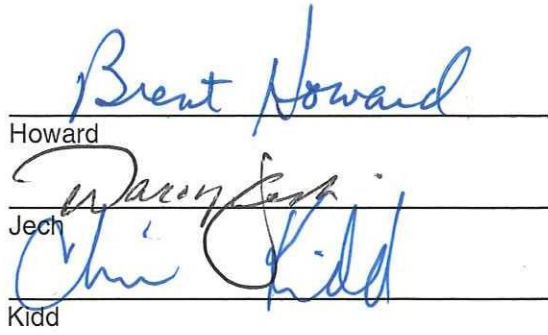 Brent Howard
Howard
Darcy Jech
Jech
Chris Kidd
Kidd